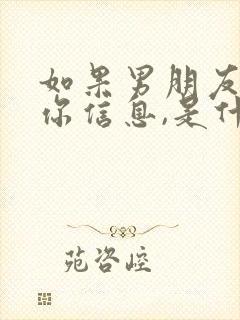 如果男朋友
你信息,是什
苑咨崆